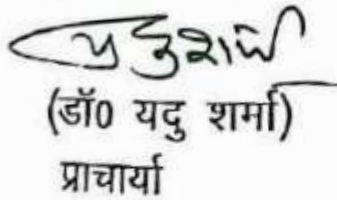 यदु शर्मा
(डॉ0 यदु शर्मा)
प्राचार्या